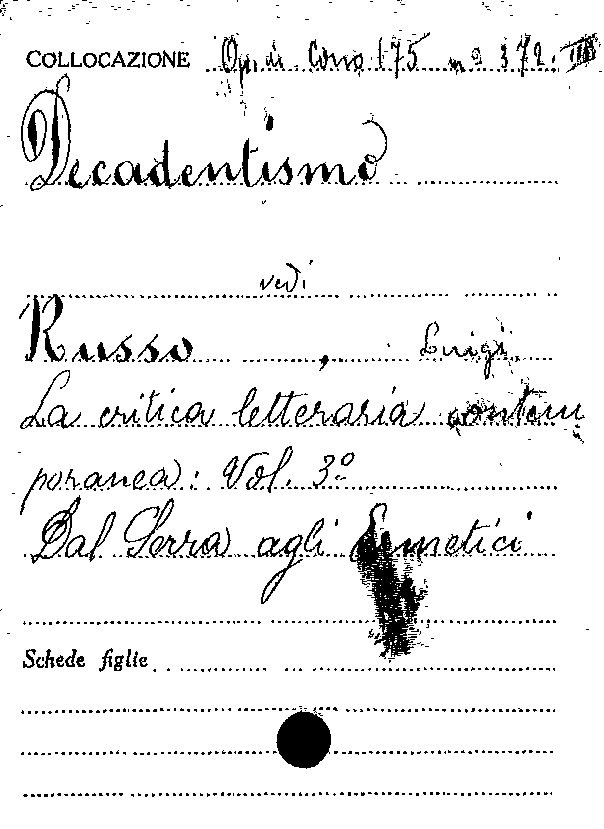 COLLOCAZIONE Op. in Corso 175 nº 372. III
Decadentismo
vedi
Russo, Luigi
La critica letteraria contem
poranea: Vol. 3º
Dal Serra agli Ermetici
Schede figlie